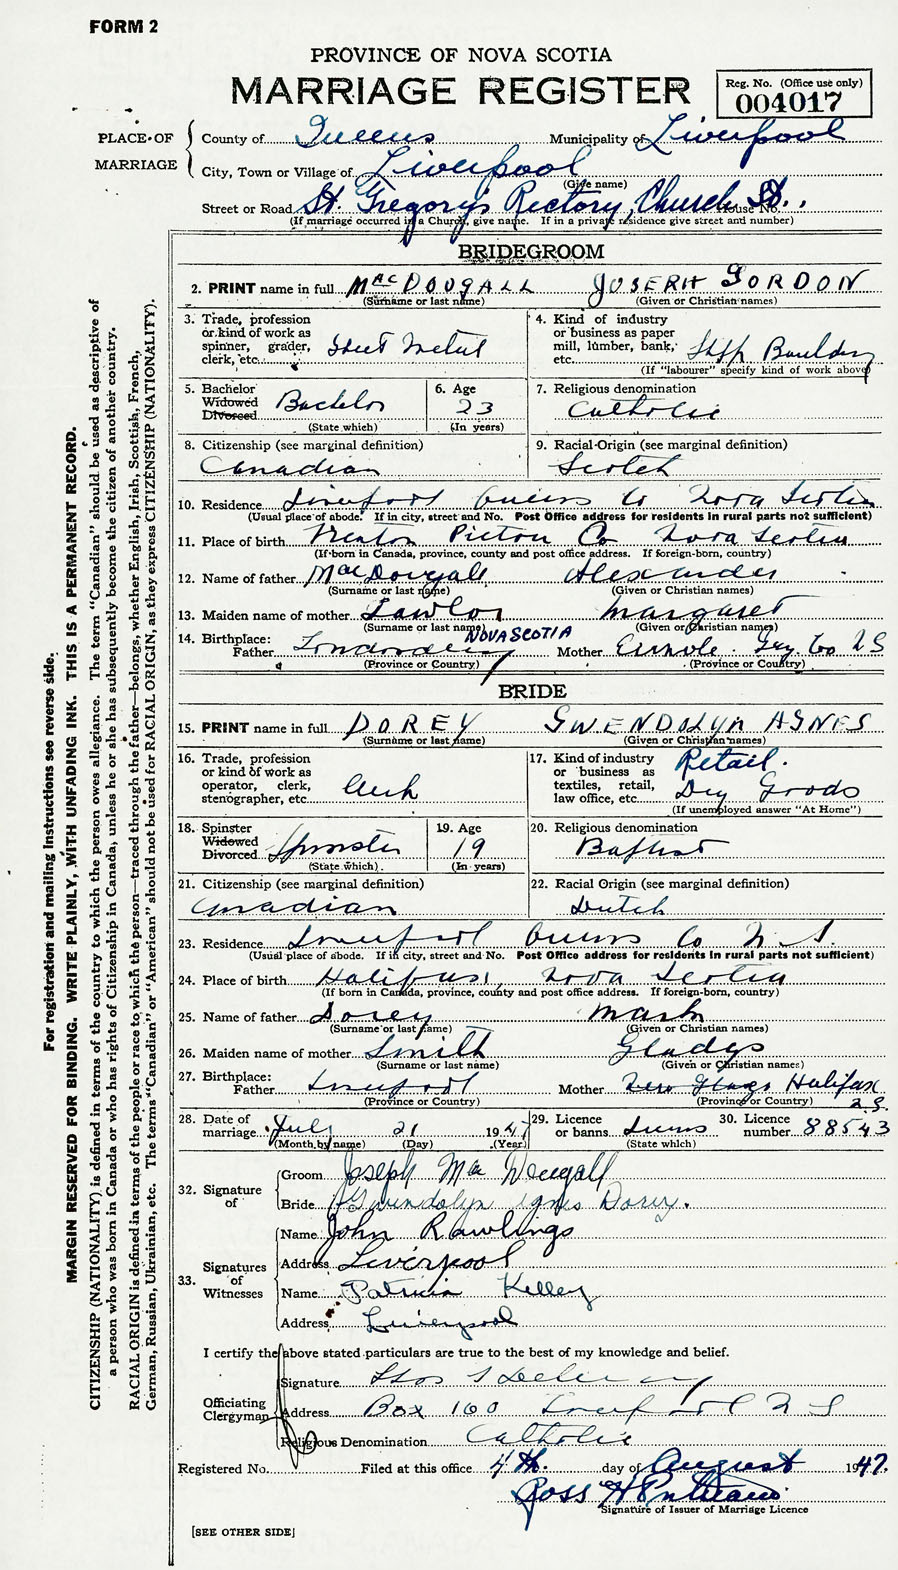 FORM 2
PROVINCE OF NOVA SCOTIA
MARRIAGE REGISTER
Reg. No. (Office use only)
004017
PLACE OF MARRIAGE
County of Queens Municipality of Liverpool
City, Town or Village of Liverpool
(Give name)
Street or Road St. Gregorys Rectory, Church St. House No.
(If marriage occurred in a Church, give name. If in a private residence give street and number)
BRIDEGROOM
2. PRINT name in full MacDOUGALL JOSEPH GORDON
(Surname or last name) (Given or Christian names)
3. Trade, profession or kind of work as spinner, grader, clerk, etc. Sheet Metal
4. Kind of industry or business as paper mill, lumber, bank, etc. Ship Building
(If "labourer" specify kind of work above)
5. Bachelor Widowed Divorced Bachelor
(State which)
6. Age 23
(In years)
7. Religious denomination
Catholic
8. Citizenship (see marginal definition)
Canadian
9. Racial Origin (see marginal definition)
Scotch
10. Residence Liverpool Queens Co Nova Scotia
(Usual place of abode. If in city, street and No. Post Office address for residents in rural parts not sufficient)
11. Place of birth Trenton Pictou Co Nova Scotia
(If born in Canada, province, county and post office address. If foreign-born, country)
12. Name of father MacDougall Alexander
(Surname or last name) (Given or Christian names)
13. Maiden name of mother Lawlor Margaret
(Surname or last name) (Given or Christian names)
NOVA SCOTIA
14. Birthplace: Father Londonderry Mother Co N S
(Province or Country) (Province or Country)
BRIDE
15. PRINT name in full DOREY GWENDOLYN AGNES
(Surname or last name) (Given or Christian names)
16. Trade, profession or kind of work as operator, clerk, stenographer, etc. Clerk
17. Kind of industry or business as textiles, retail, law office, etc. Retail. Dry Goods
(If unemployed answer "At Home")
18. Spinster Widowed Divorced Spinster
(State which)
19. Age 19
(In years)
20. Religious denomination
Baptist
21. Citizenship (see marginal definition)
Canadian
22. Racial Origin (see marginal definition)
Dutch
23. Residence Liverpool Queens Co N. S.
(Usual place of abode. If in city, street and No. Post Office address for residents in rural parts not sufficient)
24. Place of birth Halifax, Nova Scotia
(If born in Canada, province, county and post office address. If foreign-born, country)
25. Name of father Dorey Mark
(Surname or last name) (Given or Christian names)
26. Maiden name of mother Smith Gladys
(Surname or last name) (Given or Christian names)
27. Birthplace: Father Liverpool Mother Halifax N.S.
(Province or Country) (Province or Country)
28. Date of marriage July 21 1947
(Month by name) (Day) (Year)
29. Licence or banns
(State which)
30. Licence number 88543
32. Signature of
Groom Joseph MacDougall
Bride Gwendolyn Agnes Dorey.
33. Signatures of Witnesses
Name John Rawlings
Address Liverpool
Name Patricia Kelley
Address Liverpool
I certify the above stated particulars are true to the best of my knowledge and belief.
Officiating Clergyman
Signature
Address Box 160 Liverpool N S
Religious Denomination Catholic
Registered No. Filed at this office 4th. day of August 1947.
Ross H
Signature of Issuer of Marriage Licence
[SEE OTHER SIDE]
For registration and mailing instructions see reverse side.
MARGIN RESERVED FOR BINDING. WRITE PLAINLY, WITH UNFADING INK. THIS IS A PERMANENT RECORD.
CITIZENSHIP (NATIONALITY) is defined in terms of the country to which the person owes allegiance. The term "Canadian" should be used as descriptive of
a person who was born in Canada or who has rights of Citizenship in Canada, unless he or she has subsequently become the citizen of another country.
RACIAL ORIGIN is defined in terms of the people or race to which the person—traced through the father—belongs, whether English, Irish, Scottish, French,
German, Russian, Ukrainian, etc. The terms "Canadian" or "American" should not be used for RACIAL ORIGIN, as they express CITIZENSHIP (NATIONALITY).